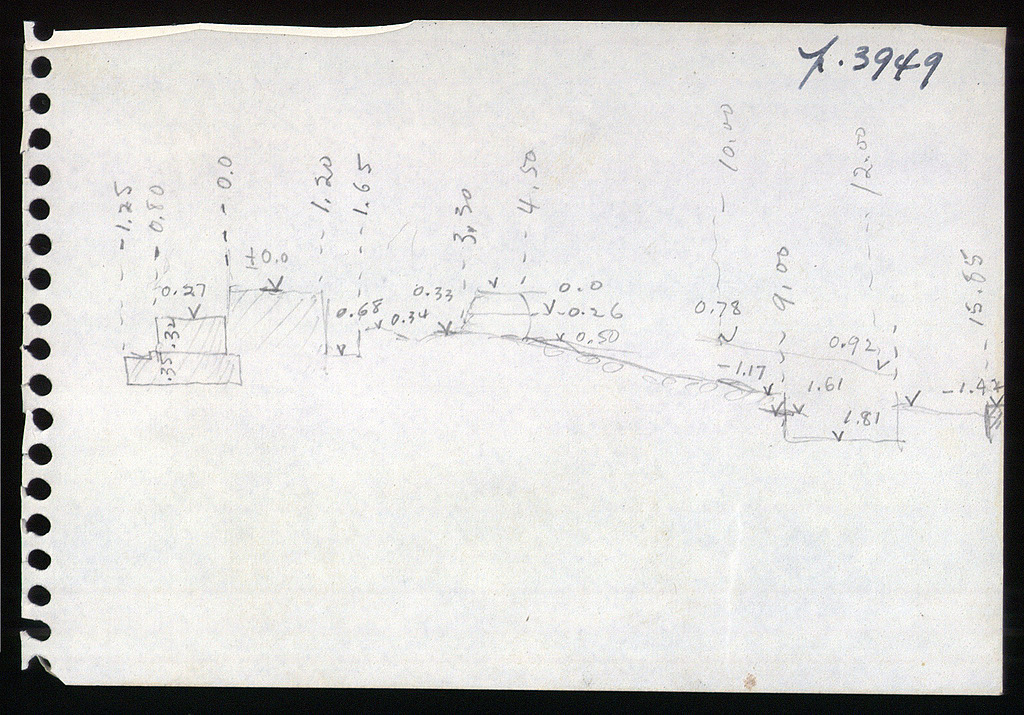 p.3949
-1.25
-0.80
-0.0
1.20
1.65
3.30
4.50
10.00
9.00
12.00
15.85
0.27
±0.0
0.68
0.34
0.33
0.0
-0.26
0.50
0.78
0.92
-1.17
1.61
1.81
.32
.35